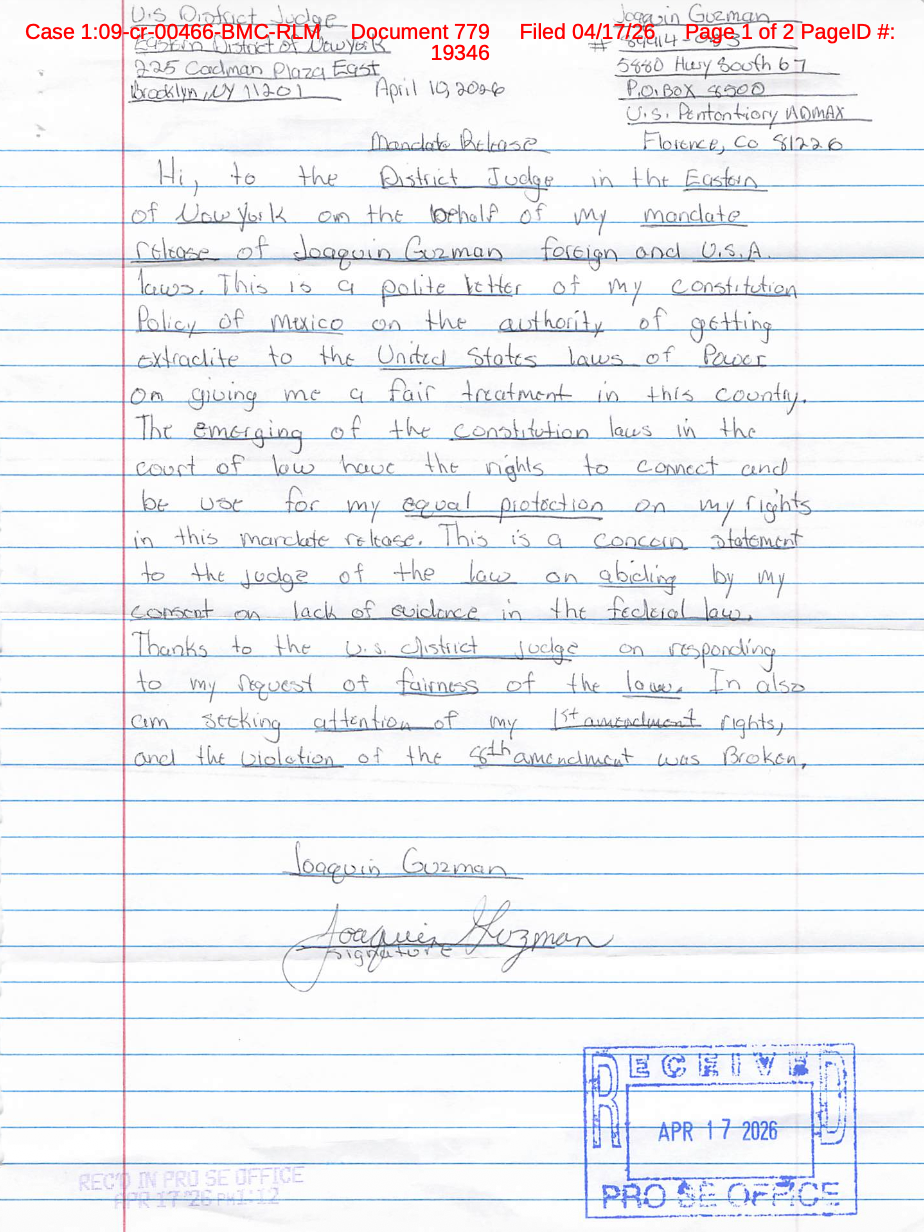 U.S District Judge
Eastern District of New York
225 Cadman Plaza East
Brooklyn, NY 11201
April 10, 2026
Joaquin Guzman
#
5880 Hwy South 67
P.O. Box 8500
U.S. Pententiary ADMAX
Florence, Co 81226
Case 1:09-cr-00466-BMC-RLM Document 779 Filed 04/17/26 Page 1 of 2 PageID #:
19346
Mandate Release
Hi, to the District Judge in the Eastern
of New York on the behalf of my mandate
release of Joaquin Guzman foreign and U.S.A.
laws. This is a polite letter of my constitution
Policy of mexico on the authority of getting
extradite to the United States laws of Power
on giving me a fair treatment in this country.
The emerging of the constitution laws in the
court of law have the rights to connect and
be use for my equal protection on my rights
in this mandate release. This is a concern statement
to the judge of the law on abiding by my
consent on lack of evidence in the federal law.
Thanks to the U.S. district judge on responding
to my request of fairness of the law. In also
am seeking attention of my 1st amendment rights,
and the violation of the 8th amendment was Broken.
Joaquin Guzman
Joaquin Guzman
Signature
RECEIVED
APR 17 2026
PRO SE OFFICE
REC'D IN PRO SE OFFICE
APR 17 '26 PM1:12